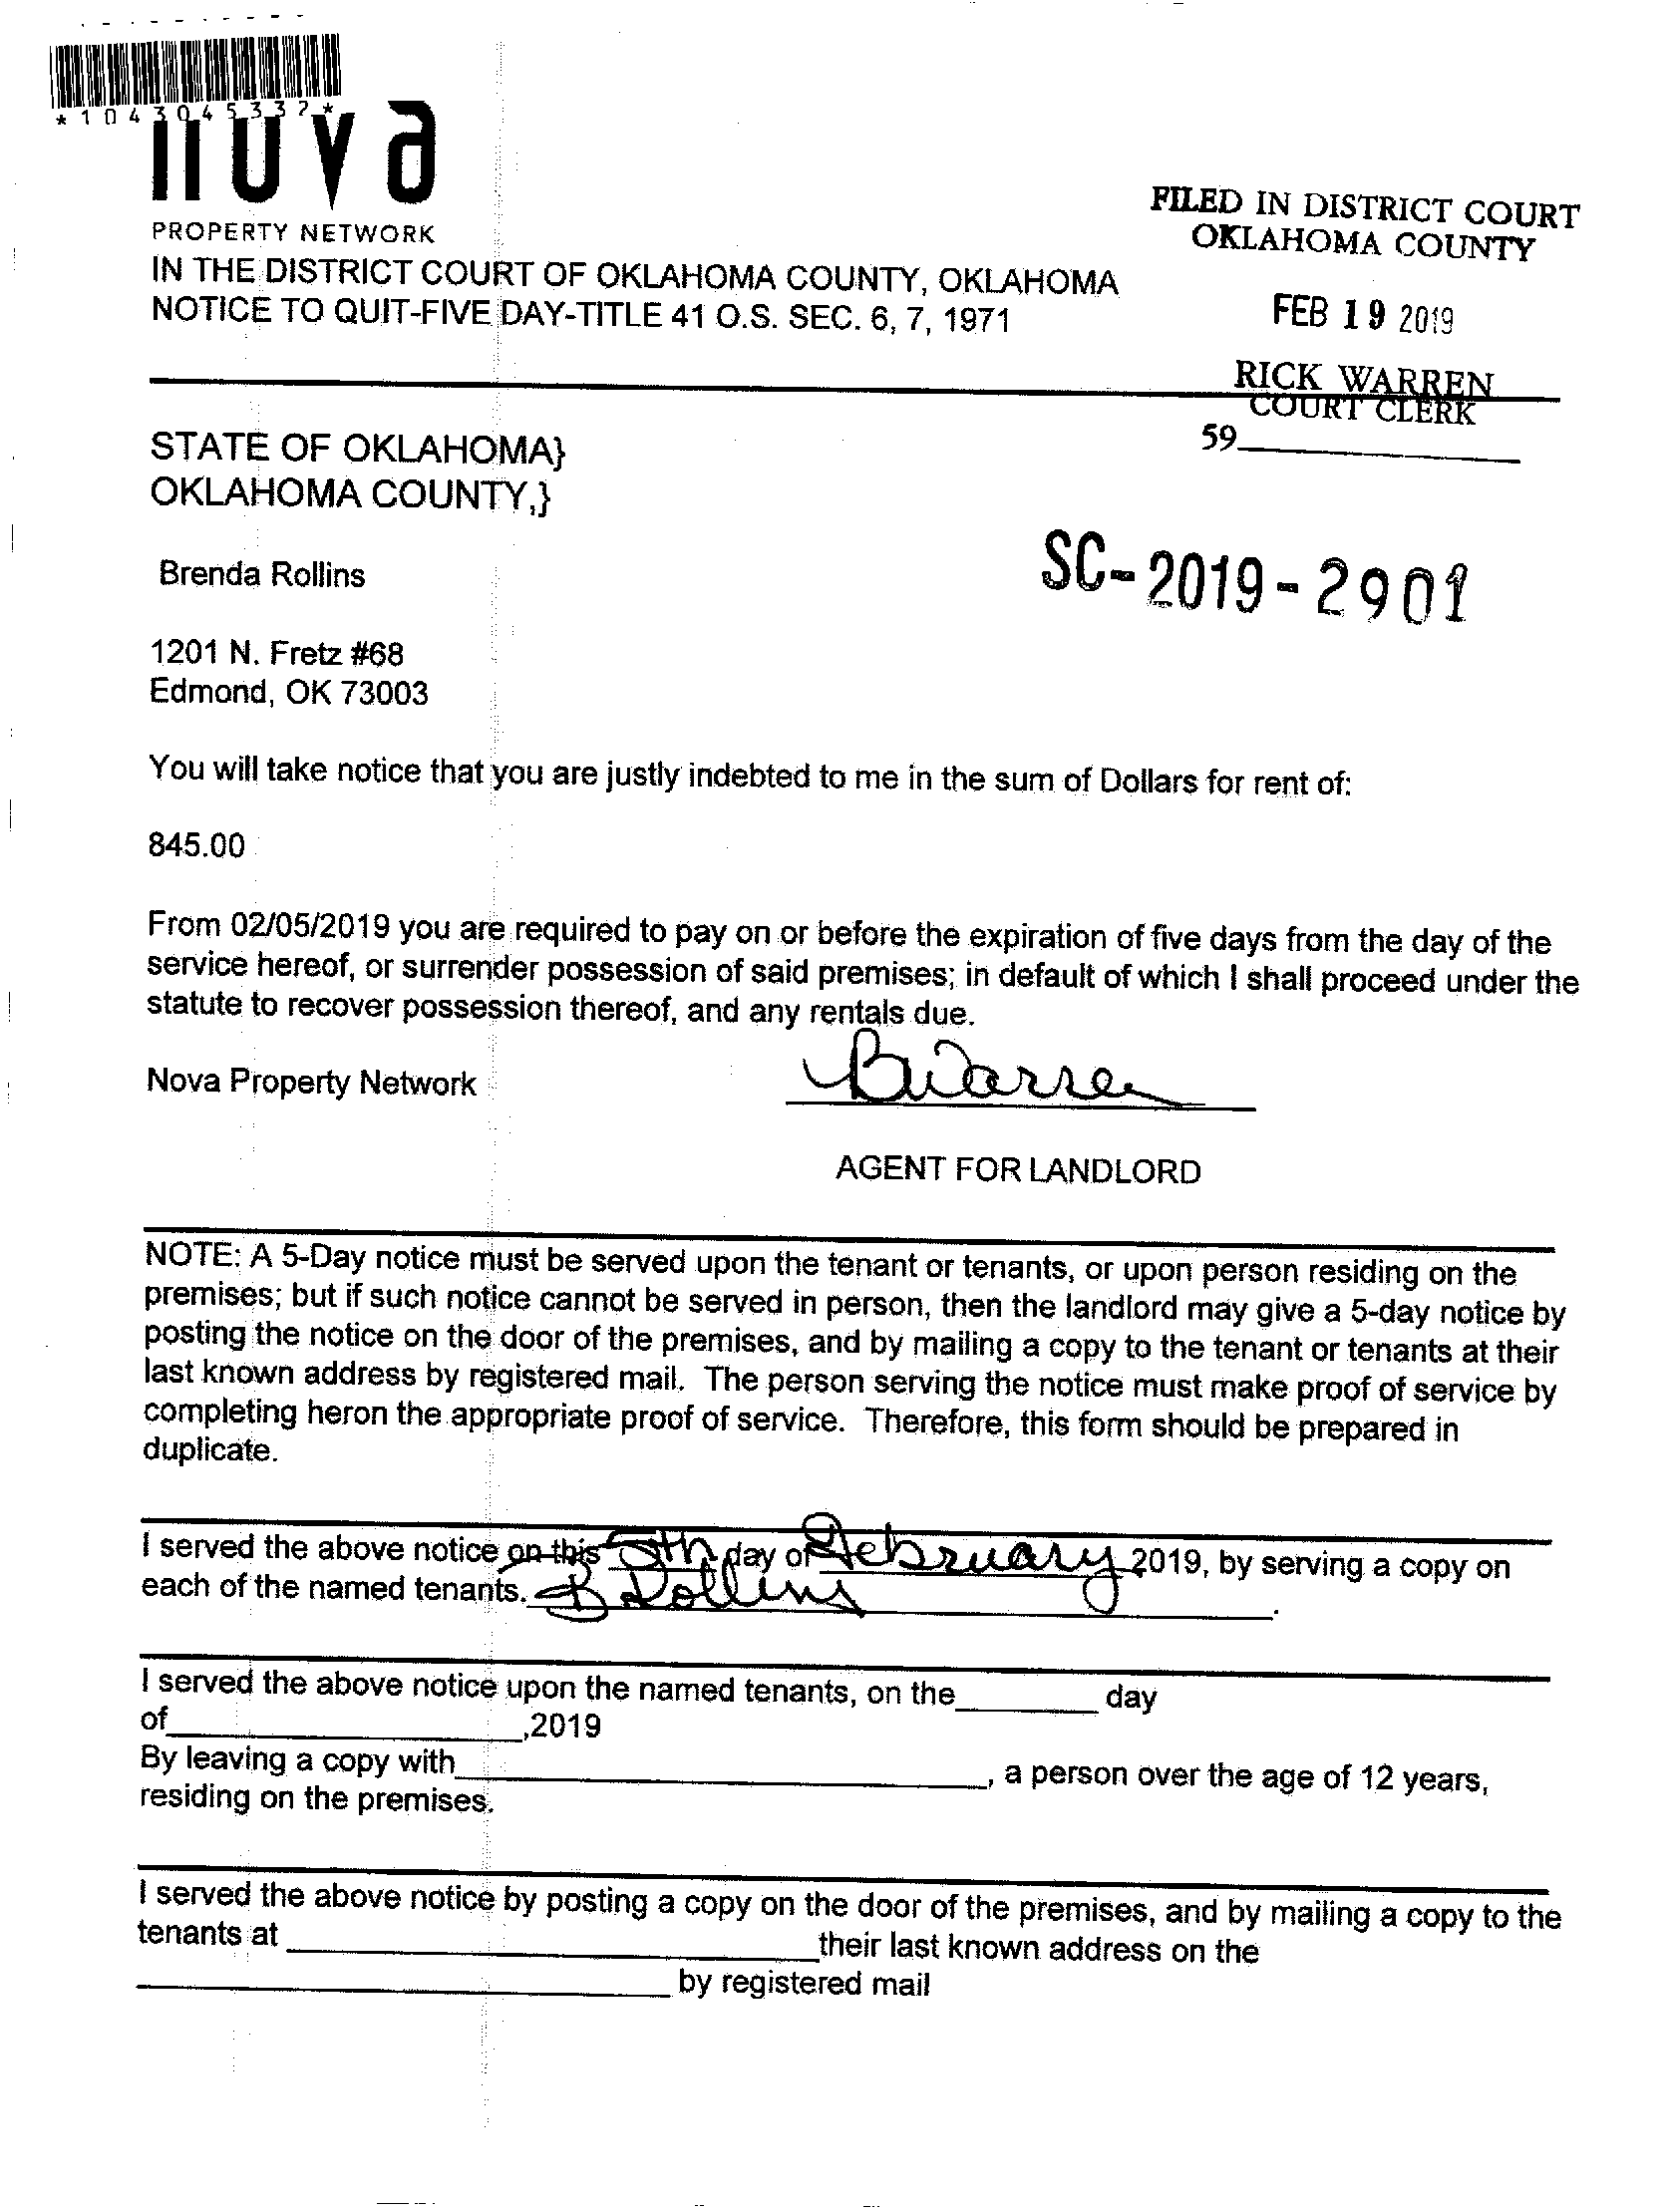 *1043045337*
nova
PROPERTY NETWORK
FILED IN DISTRICT COURT
OKLAHOMA COUNTY
IN THE DISTRICT COURT OF OKLAHOMA COUNTY, OKLAHOMA
NOTICE TO QUIT-FIVE DAY-TITLE 41 O.S. SEC. 6, 7, 1971
FEB 19 2019
RICK WARREN
COURT CLERK
59
STATE OF OKLAHOMA}
OKLAHOMA COUNTY,}
SC-2019-2901
Brenda Rollins
1201 N. Fretz #68
Edmond, OK 73003
You will take notice that you are justly indebted to me in the sum of Dollars for rent of:
845.00
From 02/05/2019 you are required to pay on or before the expiration of five days from the day of the
service hereof, or surrender possession of said premises; in default of which I shall proceed under the
statute to recover possession thereof, and any rentals due.
Nova Property Network BWarren
AGENT FOR LANDLORD
NOTE: A 5-Day notice must be served upon the tenant or tenants, or upon person residing on the
premises; but if such notice cannot be served in person, then the landlord may give a 5-day notice by
posting the notice on the door of the premises, and by mailing a copy to the tenant or tenants at their
last known address by registered mail. The person serving the notice must make proof of service by
completing heron the appropriate proof of service. Therefore, this form should be prepared in
duplicate.
I served the above notice on this 5th day of February 2019, by serving a copy on
each of the named tenants. B Rollins.
I served the above notice upon the named tenants, on the day
of ,2019
By leaving a copy with , a person over the age of 12 years,
residing on the premises.
I served the above notice by posting a copy on the door of the premises, and by mailing a copy to the
tenants at their last known address on the
by registered mail